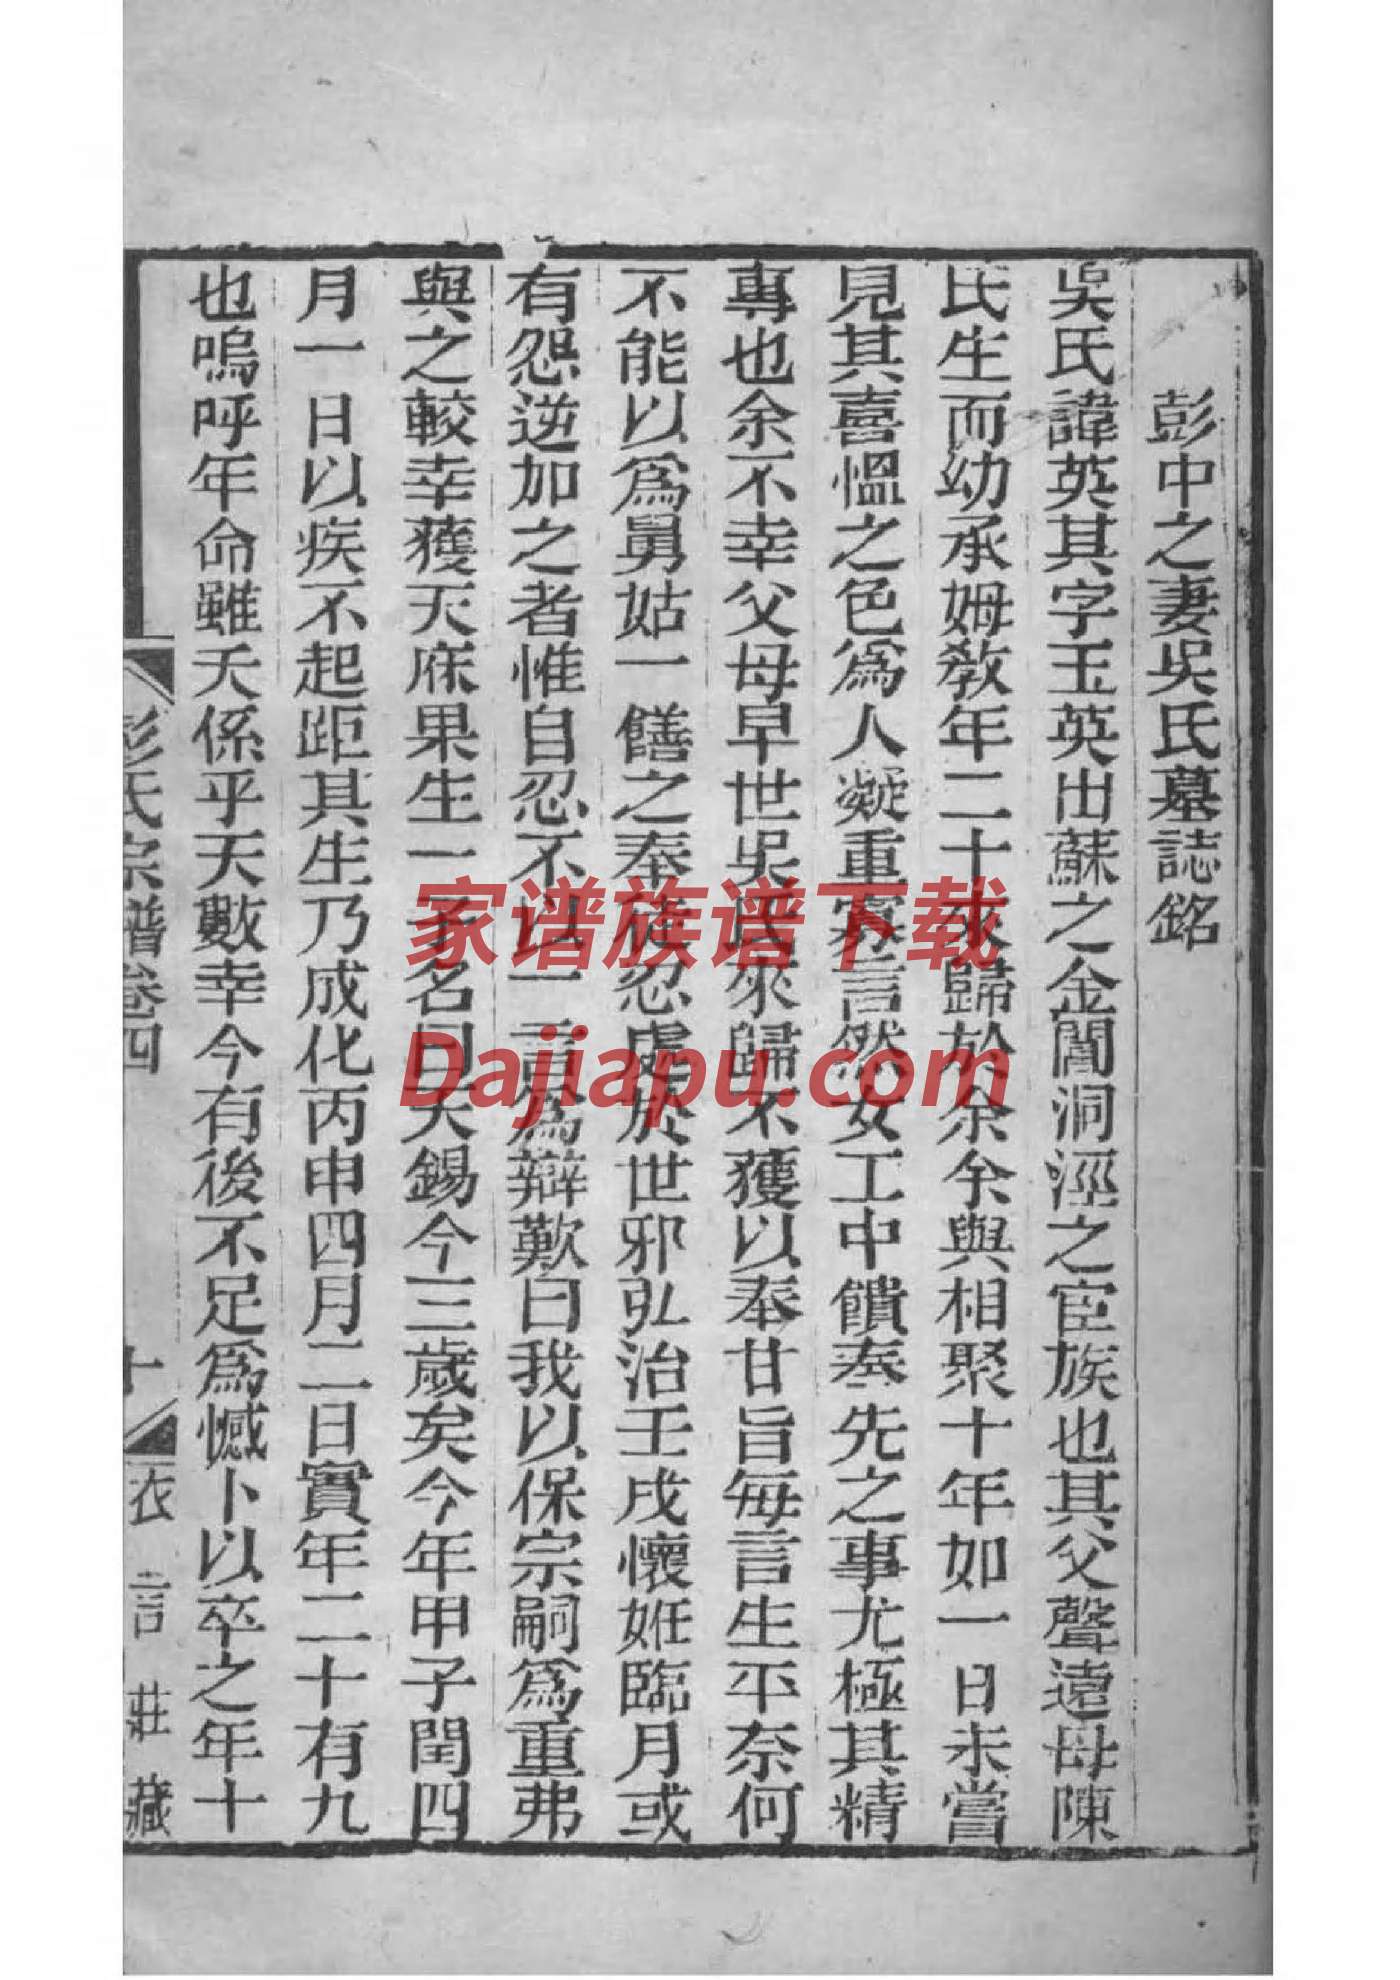 彭中之妻吳氏墓誌銘
吳氏諱英其字玉英出蘇之金閶洞涇之宦族也其父聲遠母陳
氏生而幼承姆教年二十來歸於余余與相聚十年如一日未嘗
見其喜慍之色為人凝重寡言然女工中饋奉先之事尤極其精
專也余不幸父母早世吳氏來歸不獲以奉甘旨每言生平奈何
不能以為舅姑一饍之奉徒忍處於世邪弘治壬戌懷姙臨月或
有怨逆加之者惟自忍不以一言為辯歎曰我以保宗嗣為重弗
與之較幸獲天庥果生一子名曰天錫今三歲矣今年甲子閏四
月一日以疾不起距其生乃成化丙申四月二日實年二十有九
也嗚呼年命雖夭係乎天數幸今有後不足為憾卜以卒之年十
彭氏宗譜卷四 十 衣言莊藏
家谱族谱下载
Dajiapu.com